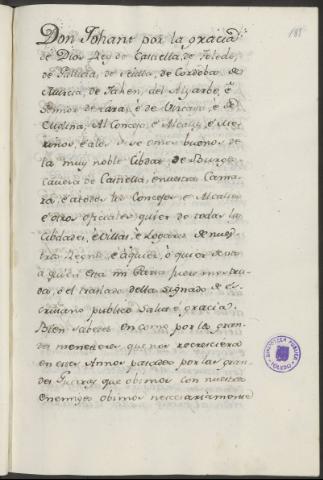 181
Don Johant por la gracia
de Dios Rey de Castiella, de Toledo,
de Gallicia, de Sevilla, de Cordoba, de
Murcia, de Jahen, del Algarbe, è
Sennor de Lara, è de Vizcaya, è de
Molina, Al Concejo, è Alcalles, è Me-
rinos, è à los omes buenos de
la muy noble Cibdat de Burgos
caveza de Castiella, è nuestra Cama-
ra, è à todos los Concejos, è Alcalles
è otros oficiales quier de todas las
Cibdades, è Villas, è Logares de nues-
tros Regnos, è à quier, ò quier de vos
à quien esta mi Carta fuere mostra-
da, ò el traslado della signado de es-
cribano publico Salud è gracia.
Bien sabedes en como por los gran-
des menesteres que nos recrescieron
en estos Annos pasados por las gran-
des Guerras que obimos con nuestros
enemigos obimos necesariamente
BIBLIOTECA PUBLICA
TOLEDO